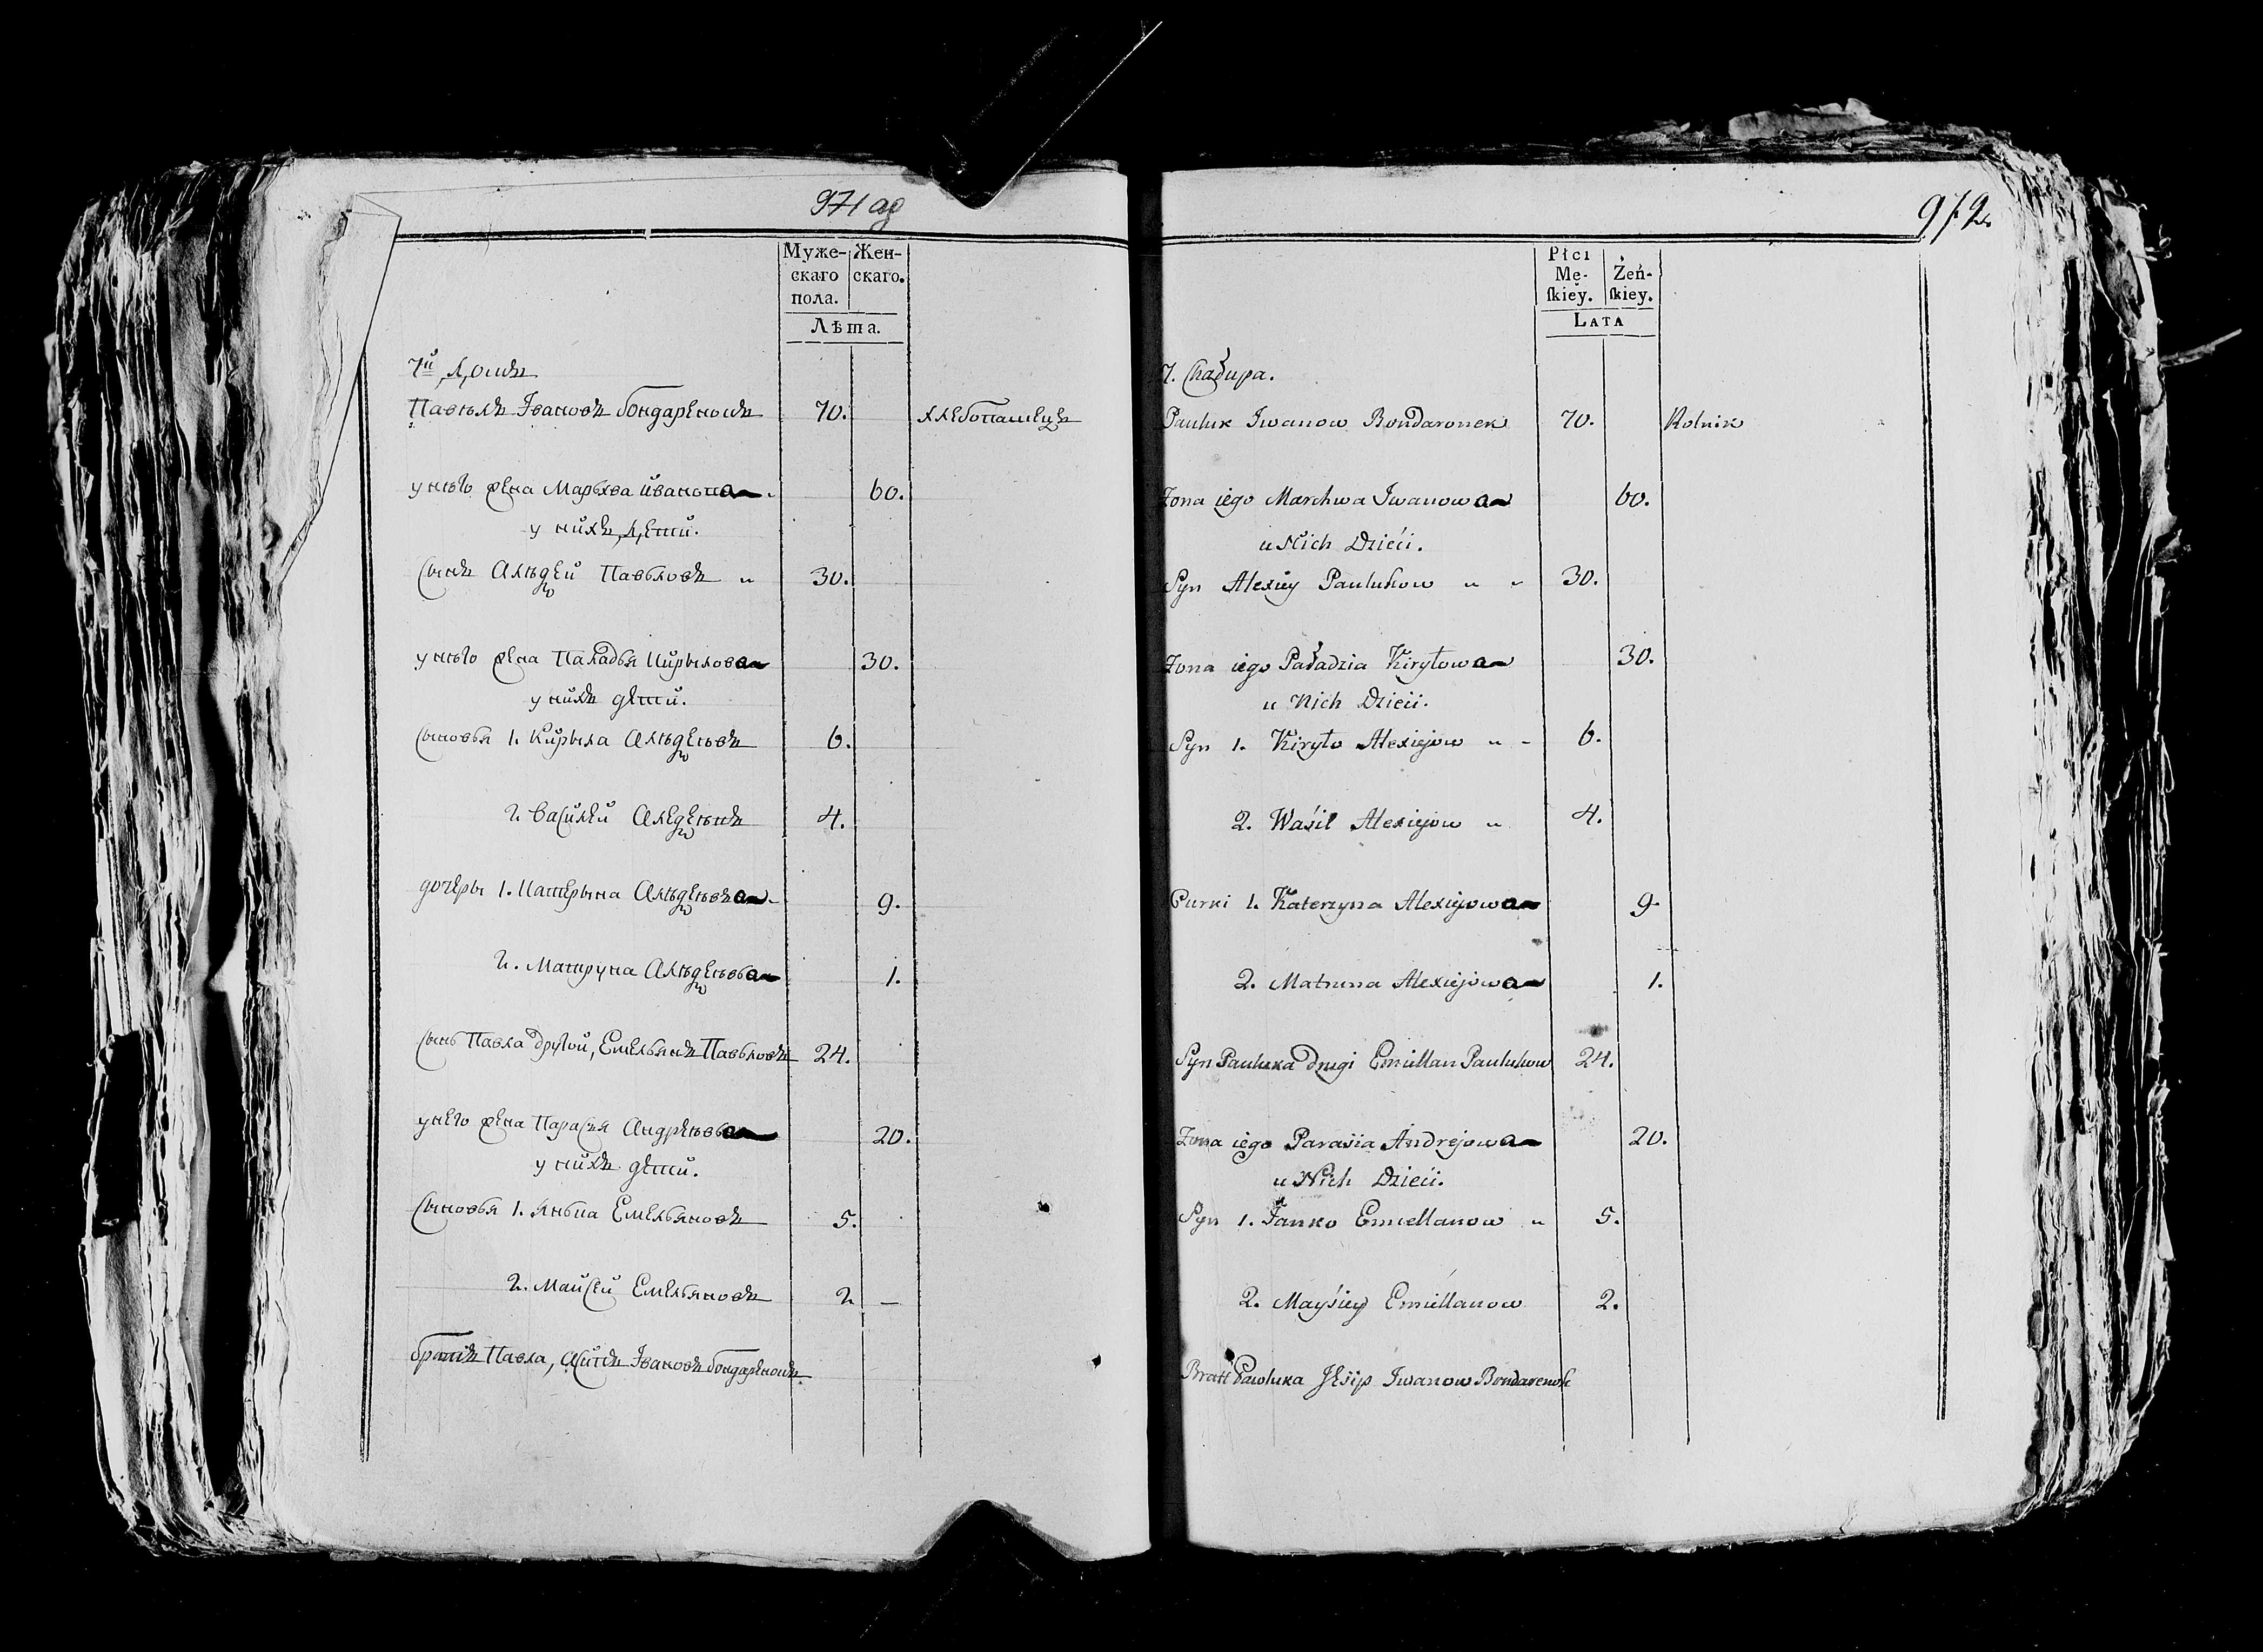 971 об
Муже- Жен-
скаго скаго.
пола.
Лѣта.
7й домъ
Павелъ Івановъ бондаренокъ 70. хлебопашецъ
у него жена Марьхва иванова 60.
у нихъ дети.
сынъ Алѣѯей Павловъ " 30.
у него жена Паладья Кирылова 30.
у нихъ дети.
сыновья 1. Кирыла Алѣѯеевъ 6.
2. Василей Алеѯеевъ 4.
дочеры 1. Катерына Алѣѯеевъа 9.
2. Матруна Алѣѯеевьа 1.
сынъ Павла другой, Емельянъ Павловъ 24.
у него жена Парасья Андреевьа 20.
у нихъ дети.
сыновья 1. Янька Емельяновъ 5.
2. Майсей Емельяновъ 2 —
братъ Павла, Асипъ Івановъ бондаренокъ.
972.
Płci
Mę- Żeń-
ſkiey. ſkiey.
LATA
7. Chałupa.
Pauluk Iwanow Bondaronek 70. Rolnik
Żona iego Marchwa Iwanowa 60.
u Nich Dzieći.
Syn Alexiey Paulukow " " 30.
Żona iego Paładzia Kiryłowa 30.
u Nich Dzieći.
Syn 1. Kiryło Alexiejow " - 6.
2. Waśil Alexiejow " 4.
Curki 1. Katerzyna Alexiejowa 9.
2. Matruna Alexiejowa 1.
Syn Pauluka drugi Emiellan Paulukow 24.
Żona iego Paraśia Andrejowa 20.
u Nich Dzieći.
Syn 1. Janko Emiellanow " 5.
2. Mayśiey Emiellanow 2.
Bratt Pawluka Iwanow Bondarenok